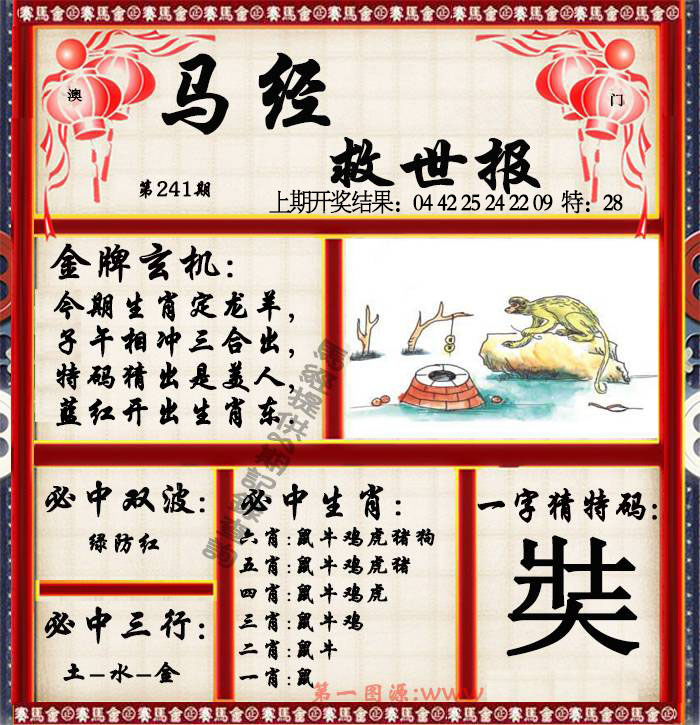 賽馬會正賽馬會正賽馬會正賽馬會正賽馬會正賽馬會正
澳
门
马经
救世报
第241期
上期开奖结果：04 42 25 24 22 09 特：28
金牌玄机：
今期生肖定龙羊，
子午相冲三合出，
特码猜出是美人，
蓝红开出生肖东．
必中双波：
绿防红
必中三行：
土–水–金
必中生肖：
六肖：鼠牛鸡虎猪狗
五肖：鼠牛鸡虎猪
四肖：鼠牛鸡虎
三肖：鼠牛鸡
二肖：鼠牛
一肖：鼠
一字猜特码：
奘
第一图源：www